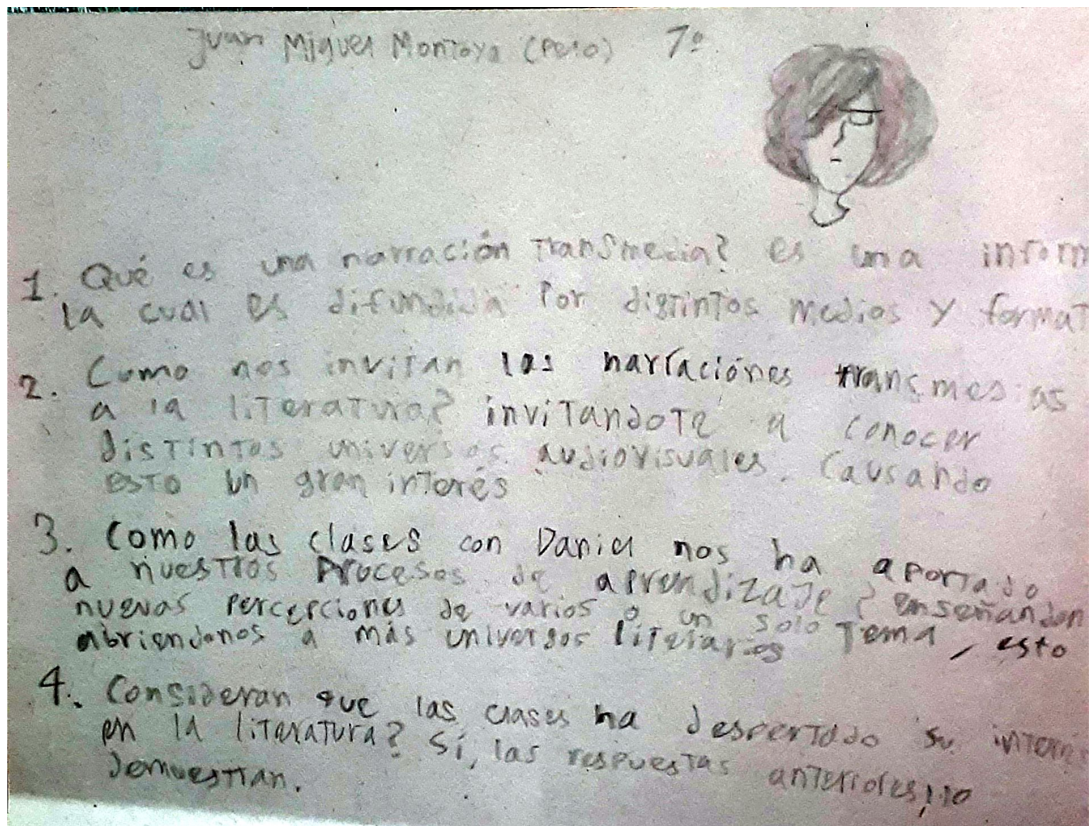 Juan Miguel Montoya (Pelo) 7º
1. Qué es una narración Transmedia? es una inform
la cual es difundida por distintos medios y format
2. Como nos invitan las narraciónes transmedias
a la literatura? invitandote a conocer
distintos universos audiovisuales. Causando
esto un gran interés
3. Como las clases con Daniel nos ha aportado
a nuestros procesos de aprendizaje? enseñandon
nuevas percepciones de varios o un solo tema, esto
abriendonos a más universos literarios
4. Consideran que las clases ha despertado su interé
en la literatura? Sí, las respuestas anteriores, lo
demuestran.